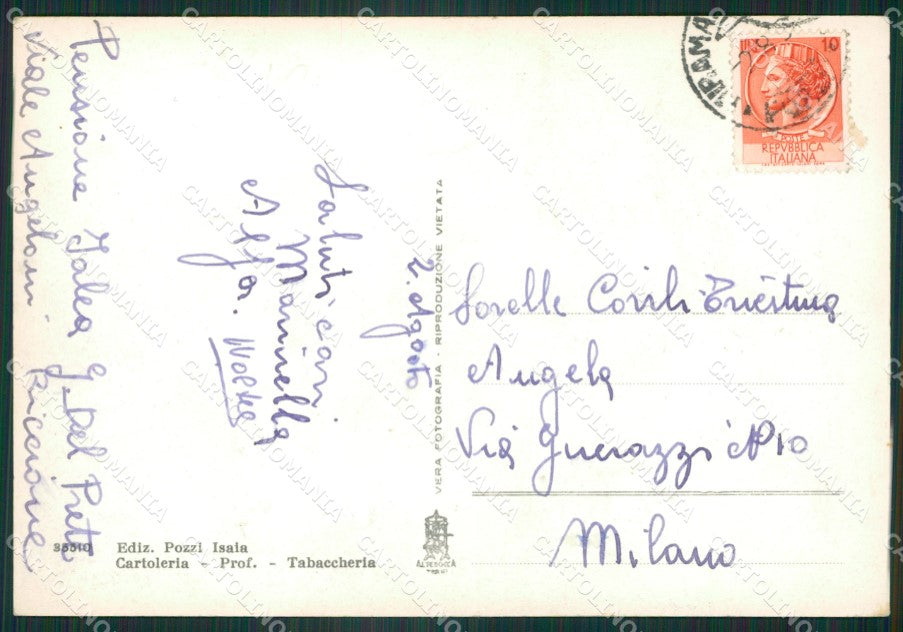 Pensione Jalea G. Del Prete
Viale Angeloni Riccione
Saluti cari
Marinella
Alfa.
2. Agosto
VERA FOTOGRAFIA - RIPRODUZIONE VIETATA
10
POSTE
REPVBBLICA
ITALIANA
Sorelle
Angela
Via Guerazzi N 10
Milano
35510
Ediz. Pozzi Isaia
Cartoleria - Prof. - Tabaccheria
CARTOLINOMANIA